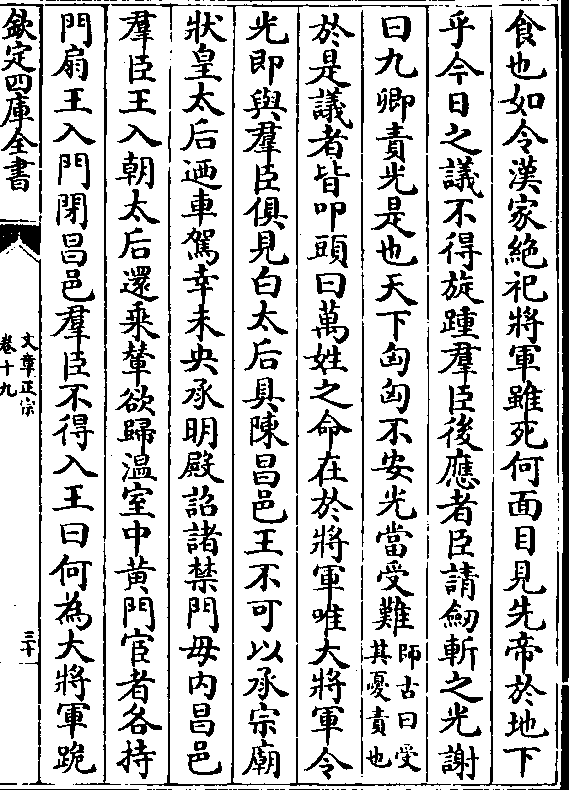 食也如令漢家絶祀將軍雖死何面目見先帝於地下
乎今日之議不得旋踵羣臣後應者臣請劒斬之光謝
曰九卿責光是也天下匈匈不安光當受難師古曰受其憂責也
於是議者皆叩頭曰萬姓之命在於將軍唯大將軍令
光即與羣臣俱見白太后具陳昌邑王不可以承宗廟
狀皇太后迺車駕幸未央承明殿詔諸禁門毋内昌邑
羣臣王入朝太后還乘輦欲歸温室中黄門宦者各持
門扇王入門閉昌邑羣臣不得入王曰何為大將軍跪
欽定四庫全書
文章正宗
卷十九
三十